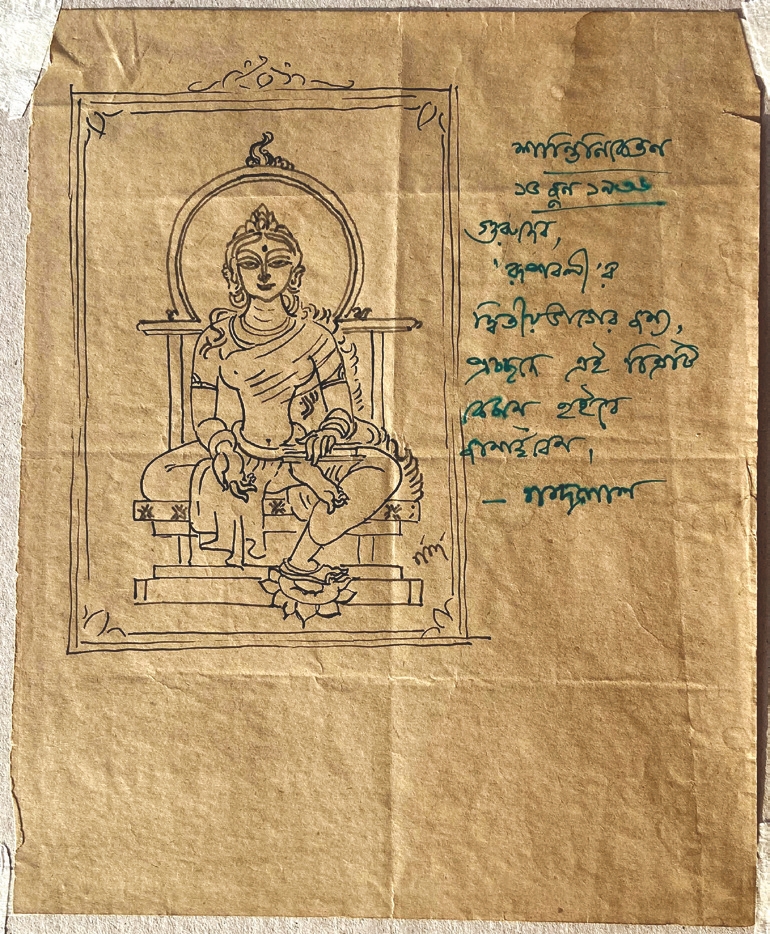 শান্তিনিকেতন
১৫ জুন ১৯৩৬
গুরুদেব,
'রূপাবলী'র
দ্বিতীয়ভাগের জন্য,
প্রচ্ছদে এই চিত্রটি
কেমন হইবে
জানাইবেন।
– নন্দলাল
নন্দ